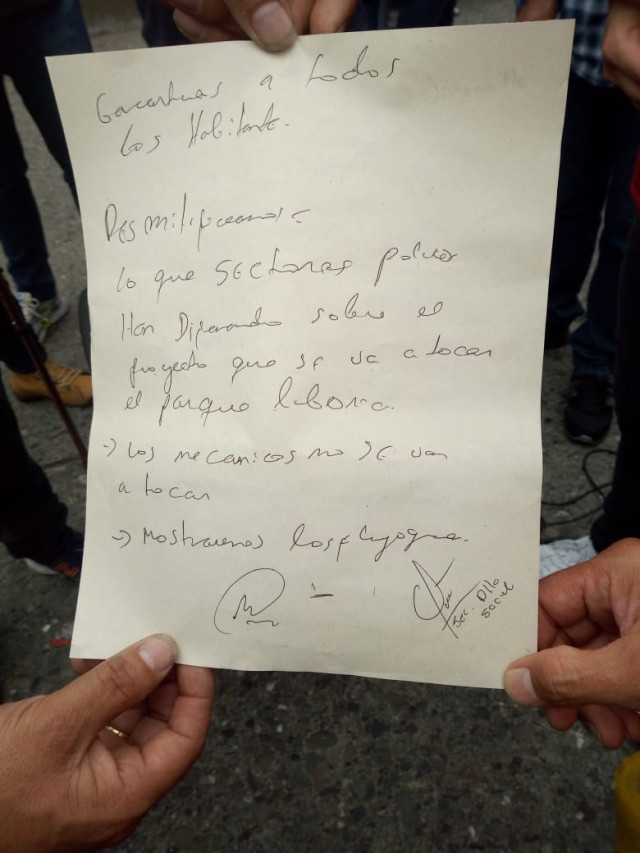 Garantias a todos
los Habitante.
lo que SECTORES
Han sobre el
proyecto que se va a tocar
el parque
→ los mecanicos no se van
a tocar
→ Mostraremos
Sec. Dllo
Social